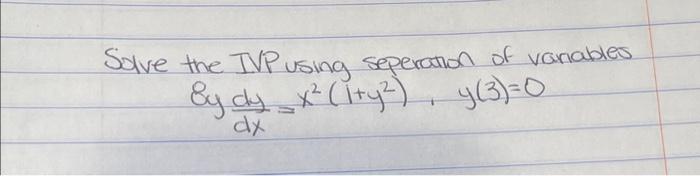 Solve the IVP using seperation of variables
8y dy/dx = x² (1+y²), y(3)=0